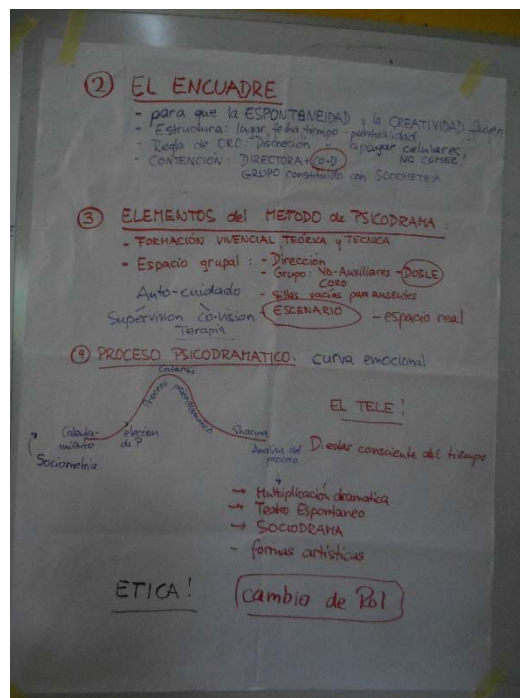 ② EL ENCUADRE
- para que la ESPONTANEIDAD y la CREATIVIDAD fluyen
- Estructura: lugar, fecha, tiempo - puntualidad
- Regla de ORO: Discreción - apagar celulares,
NO COMER!
- CONTENCIÓN: DIRECTORA + CO-D
GRUPO constituido con SOCIOMETRIA
③ ELEMENTOS del METODO de PSICODRAMA:
- FORMACIÓN VIVENCIAL, TEÓRICA y TECNICA
- Espacio grupal: - Dirección
- Grupo: Yo-Auxiliares - DOBLE
CORO
Auto-cuidado - Sillas vacías para ausentes
Supervision Co-Vision - ESCENARIO - espacio real
Terapia
④ PROCESO PSICODRAMATICO: curva emocional
Catarsis
Proceso psicodramatico
EL TELE!
Caldea-
miento
elección
de P
Sharing
Análisis del
proceso
Sociometria
D: estar consciente del tiempo
→ Multiplicación dramatica
→ Teatro Espontaneo
→ SOCIODRAMA
- formas artísticas
ETICA!
cambio de Rol